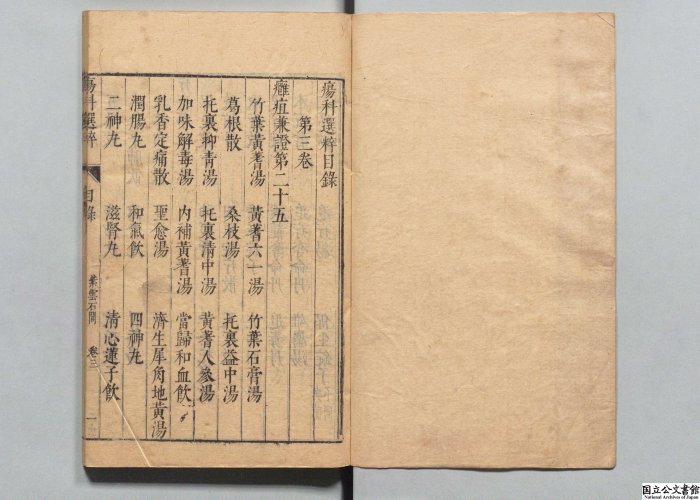 瘍科選粹目錄
第三卷
癰疽兼證第二十五
竹葉黃耆湯 黃耆六一湯 竹葉石膏湯
葛根散 桑枝湯 托裏益中湯
托裏抑青湯 托裏清中湯 黃耆人參湯
加味解毒湯 內補黃耆湯 當歸和血飲
乳香定痛散 聖愈湯 濟生犀角地黃湯
潤腸丸 和氣飲 四神丸
二神丸 滋腎丸 清心蓮子飲
瘍科選粹 目錄 卷三 一
国立公文書館
National Archives of Japan